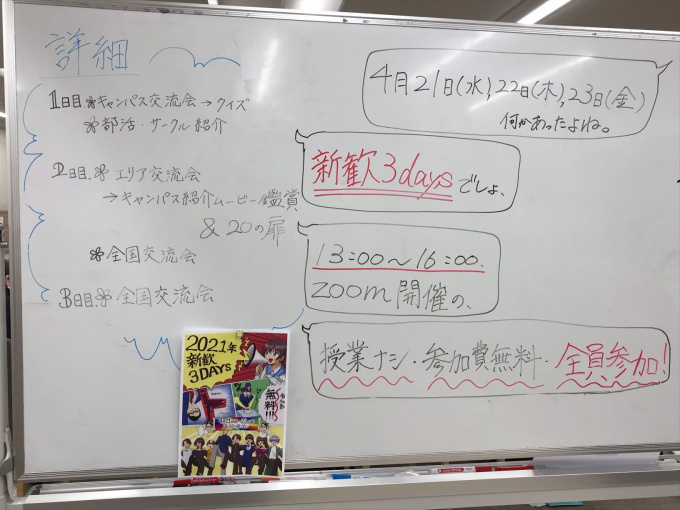 詳細
1日目 ✽キャンパス交流会→クイズ
✽部活・サークル紹介
2日目.✽エリア交流会
→キャンパス紹介ムービー鑑賞
& 20の扉
✽全国交流会
3日目.✽全国交流会
4月21日(水),22日(木),23日(金)
何かあったよね。
新歓3daysでしょ、
13:00〜16:00.
zoom開催の、
授業ナシ・参加費無料・全員参加!
2021年
新歓
3DAYS
無料!!!